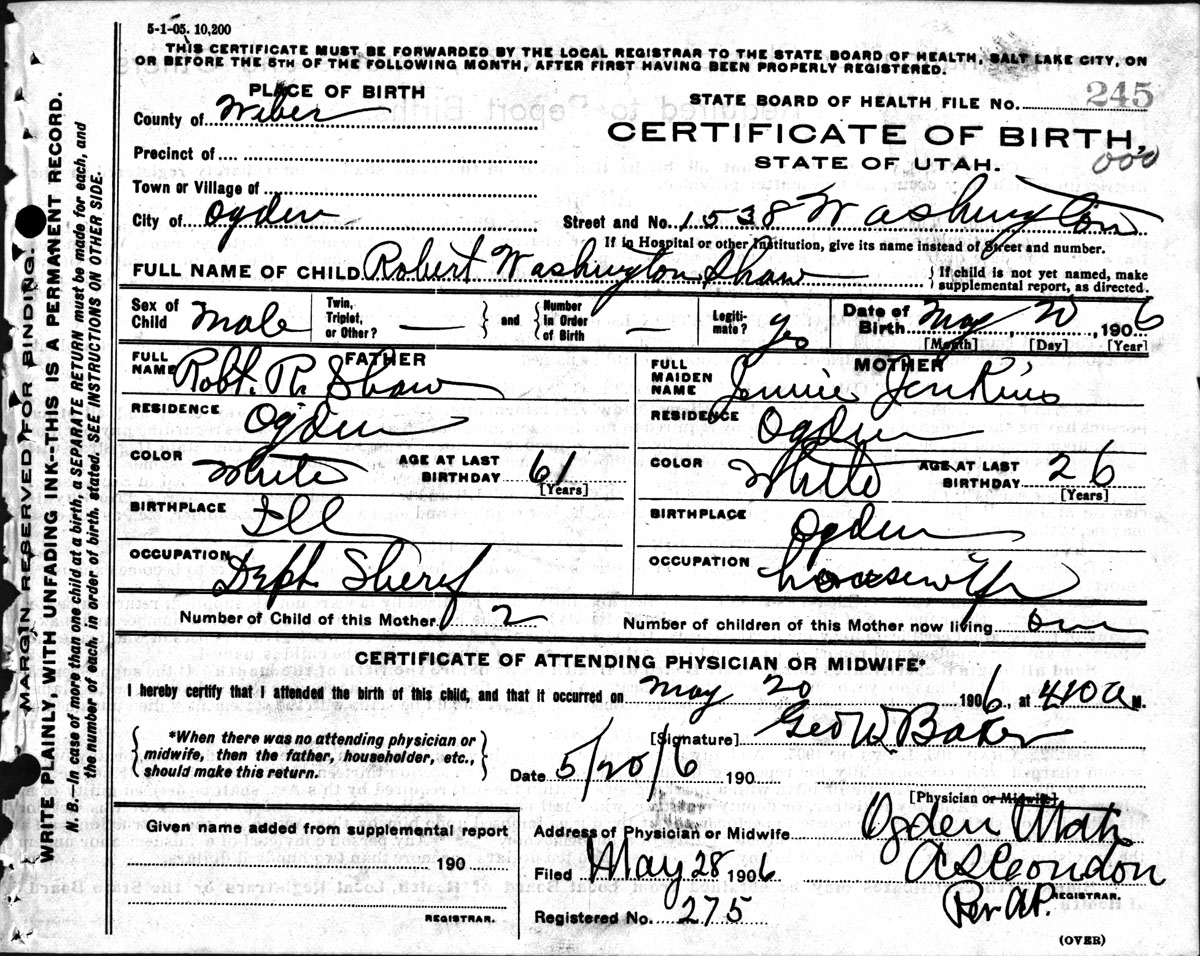 5-1-05. 10,200
THIS CERTIFICATE MUST BE FORWARDED BY THE LOCAL REGISTRAR TO THE STATE BOARD OF HEALTH, SALT LAKE CITY, ON
OR BEFORE THE 5TH OF THE FOLLOWING MONTH, AFTER FIRST HAVING BEEN PROPERLY REGISTERED.
MARGIN RESERVED FOR BINDING
WRITE PLAINLY, WITH UNFADING INK--THIS IS A PERMANENT RECORD.
N. B.—In case of more than one child at a birth, a SEPARATE RETURN must be made for each, and
the number of each, in order of birth, stated. SEE INSTRUCTIONS ON OTHER SIDE.
PLACE OF BIRTH
County of Weber
Precinct of
Town or Village of
City of Ogden
STATE BOARD OF HEALTH FILE No. 245
CERTIFICATE OF BIRTH,
STATE OF UTAH.
000
Street and No. 1538 Washington
If in Hospital or other Institution, give its name instead of Street and number.
FULL NAME OF CHILD Robert Washington Shaw
{ If child is not yet named, make
supplemental report, as directed.
Sex of Child Male
Twin, Triplet, or Other? — } and { Number in Order of Birth —
Legiti-mate? yes
Date of Birth May, 20, 1906
[Month] [Day] [Year]
FATHER
FULL NAME Robt. R. Shaw
RESIDENCE Ogden
COLOR White AGE AT LAST BIRTHDAY 61
[Years]
BIRTHPLACE Ill
OCCUPATION Dept. Sheref
MOTHER
FULL MAIDEN NAME Jennie Jenkins
RESIDENCE Ogden
COLOR White AGE AT LAST BIRTHDAY 26
[Years]
BIRTHPLACE Ogden
OCCUPATION housewife
Number of Child of this Mother 2 Number of children of this Mother now living one
CERTIFICATE OF ATTENDING PHYSICIAN OR MIDWIFE*
I hereby certify that I attended the birth of this child, and that it occurred on May 20 1906, at 410 a M.
{ *When there was no attending physician or
midwife, then the father, householder, etc.,
should make this return. }
[Signature] Geo W Baker
Date 5/20/6 190
[Physician or Midwife]
Given name added from supplemental report
190
REGISTRAR.
Address of Physician or Midwife Ogden Utah
Filed May 28 1906 A S Condon
REGISTRAR.
Per A.P.
Registered No. 275
(OVER)